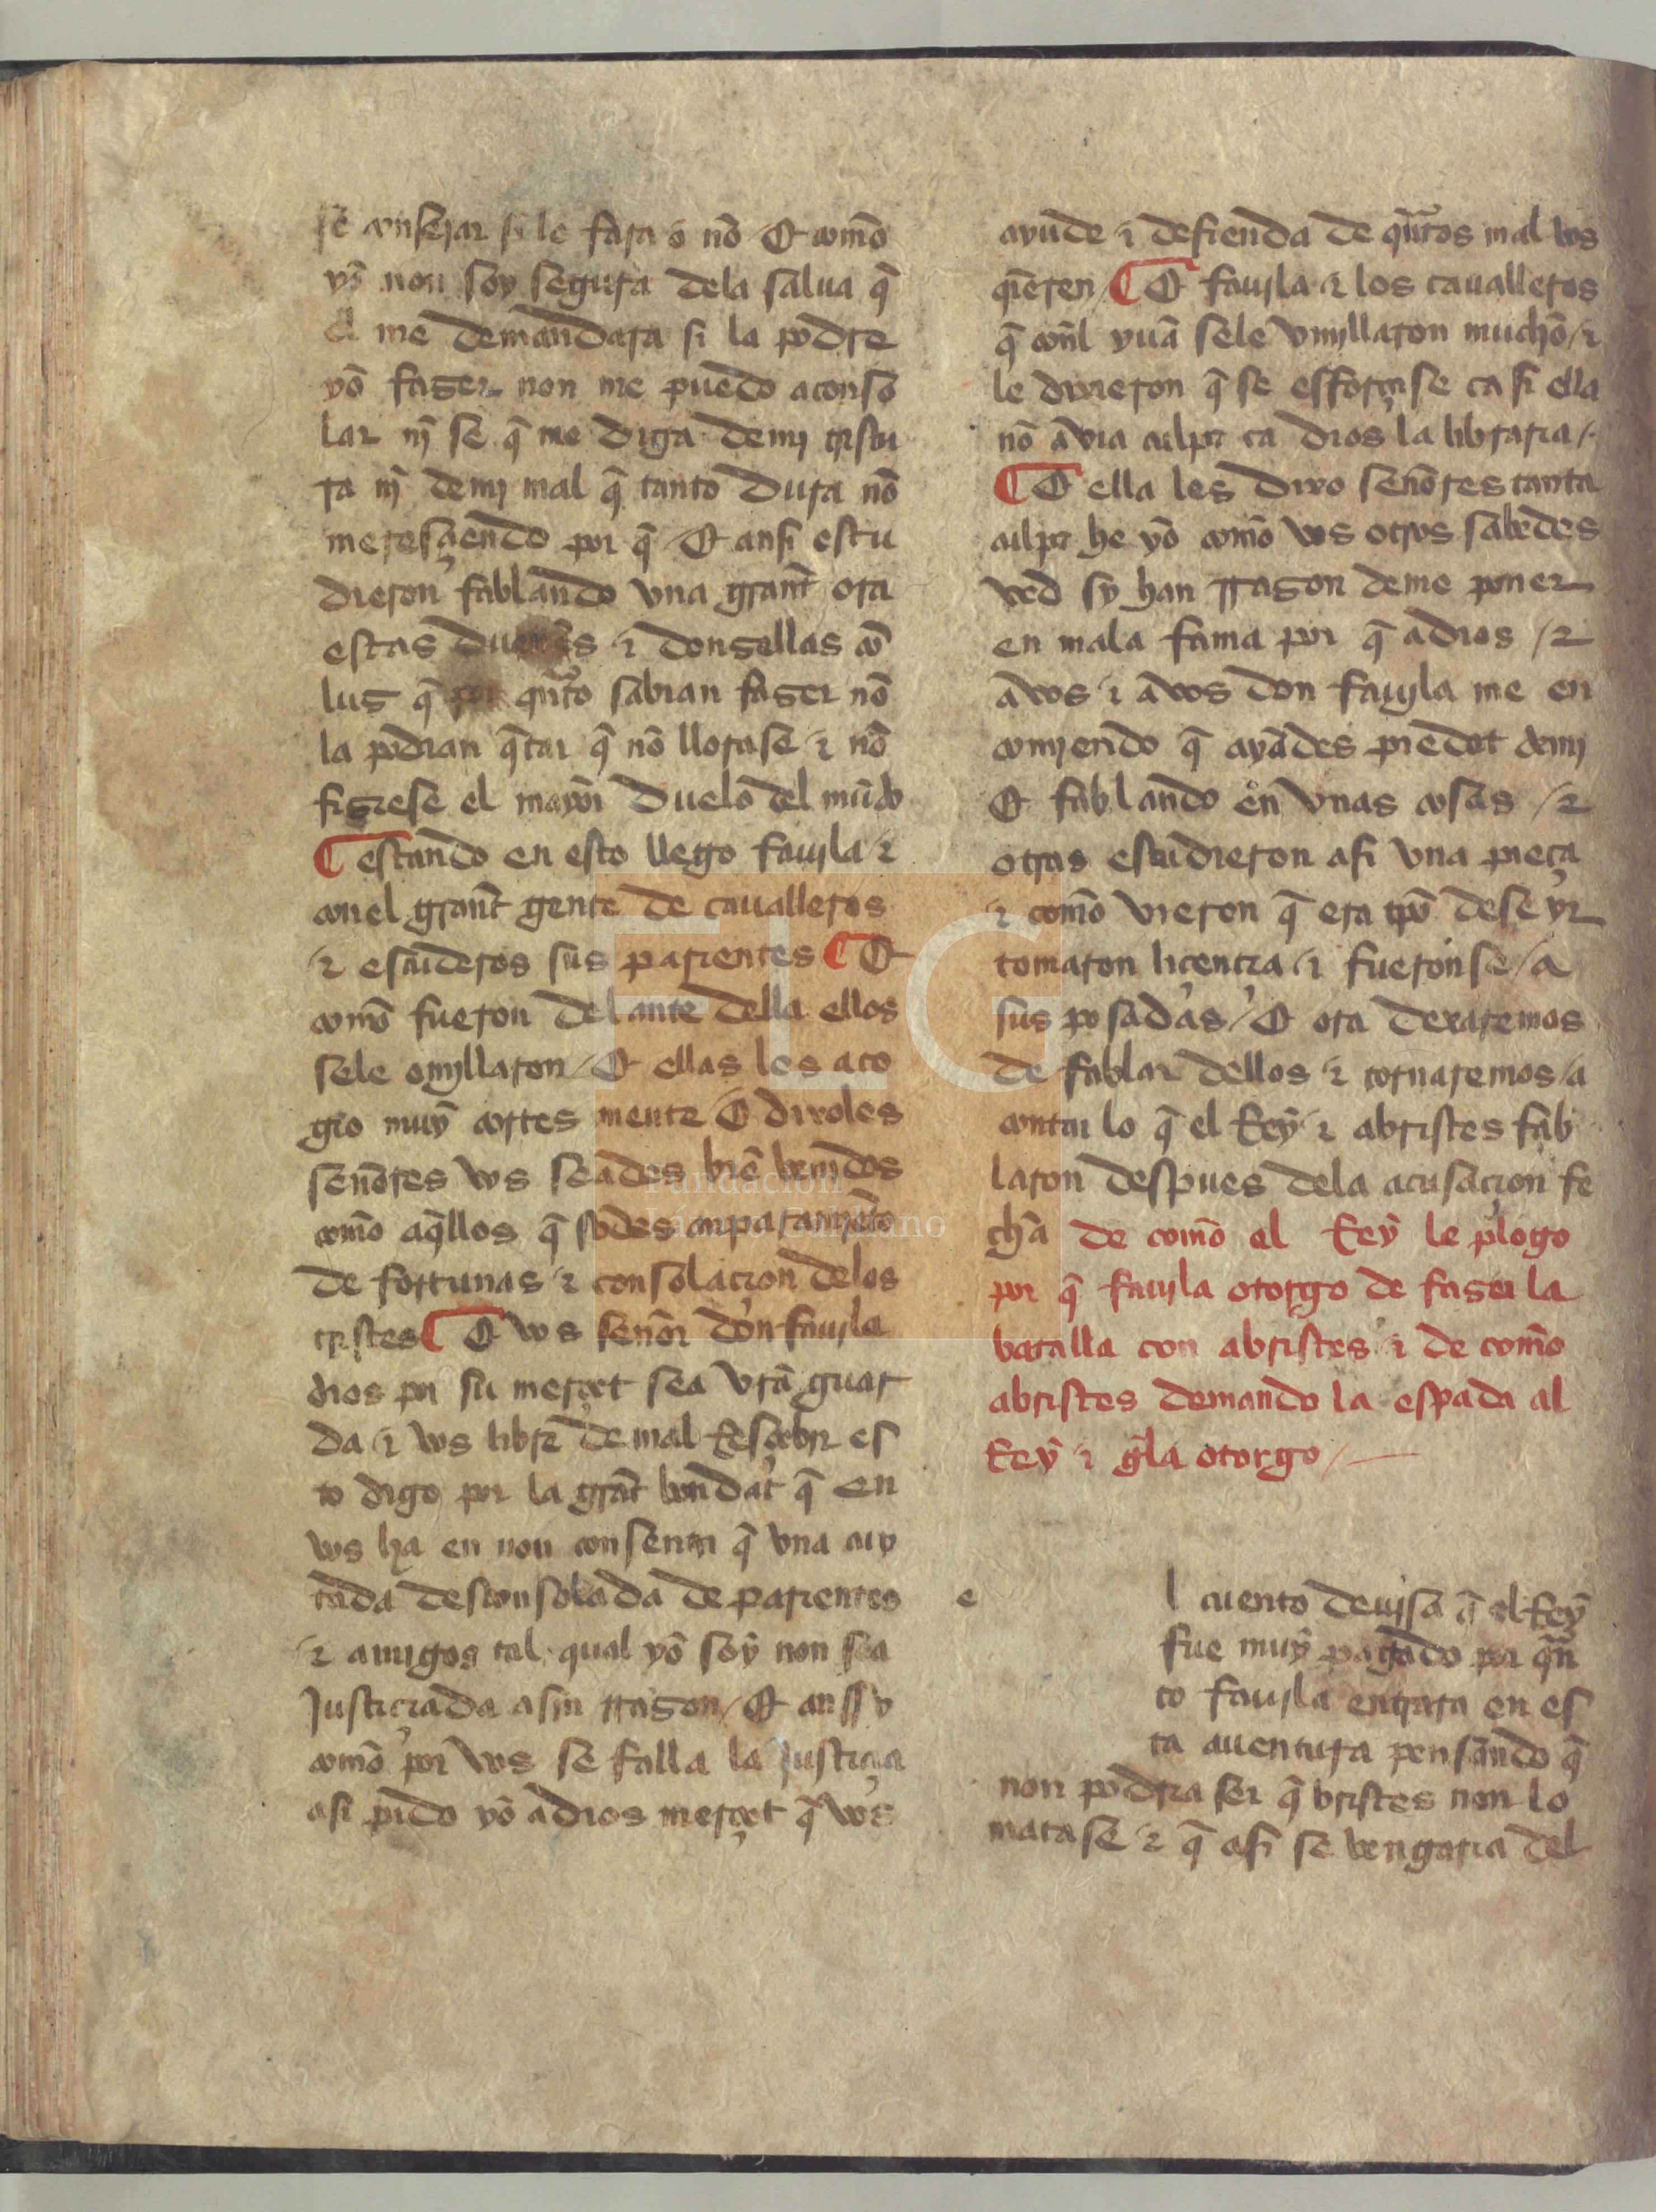 se conseiar si le fara o nõ Et comõ
yõ non soy segura dela salua q̃
el me demandara si la podre
yõ faser non me puedo aconso
lar nj̃ se q̃ me diga de mj tristu
ra nj̃ de mj mal q̃ tanto dura nõ
meresçiendo por q̃ Et ansi estu
dieron fablando vna grañt ora
estas dueñas ⁊ donsellas cõ
lus q̃ por qñto sabian faser nõ
la podian q̃tar q̃ nõ llorase ⁊ nõ
fisiese el mayor duelo del mũdo
¶ estando en esto llego fauila ⁊
con el grañt gente de caualleros
⁊ escuderos sus parientes ¶ Et
comõ fueron delante della ellos
sele omjllaron / Et ellas les aco
gio muỹ cortes mente Et dixoles
señores vos seades biẽ venidos
comõ aq̃llos q̃ sodes anparamjẽto
de fortunas ⁊ consolaçion delos
tristes ¶ Et vos señor don fauila
dios por su merçet sea vr̃a guar
da ⁊ vos libre de mal Resçebir es
to digo por la grãt bondat q̃ en
vos ha en non consentir q̃ vna cuy
tada desconsolada de parientes
⁊ amigos tal qual yõ soỹ non sea
Justiçiada a sin rrason / Et anssy
comõ por vos se falla la Justiçia
asi pido yõ a dios merçet q̃ vos
ayude ⁊ defienda de qñtos mal vos
q̃eren / ¶ Et fauila ⁊ los caualleros
q̃ coñl yuã sele vmjllaron muchõ / ⁊
le dixieron q̃ se esforçase ca si ella
nõ avia culpa ca dios la libraria /
¶ Et ella les dixo señores tanta
culpa he yõ comõ vos otros sabedes
ved sy han rrason de me poner
en mala fama por q̃ a dios / ⁊
a vos ⁊ a vos don fauila me en
comjendo q̃ ayades piedat de mj
Et fablando en vnas cosas / ⁊
otras estudieron asi vna pieça
⁊ comõ vieron q̃ era tpõ de se yr
tomaron liçençia / ⁊ fueronse / a
sus posadas / Et ora dexaremos
de fablar dellos ⁊ tornaremos / a
contar lo q̃ el Reỹ ⁊ abristes fab
laron despues dela acusaçion fe
chã de comõ el Reỹ le plogo
por q̃ fauila otorgo de faser la
batalla con abristes ⁊ de comõ
abristes demando la espada al
Reỹ ⁊ gela otorgo / —
e l cuento deujsa q̃ el Reỹ
fue muỹ pagado por qñ
to fauila entrara en es
ta auentura pensando q̃
non podria ser q̃ bristes non lo
matase ⁊ q̃ asi se vengaria del
FLG
Fundación
Lázaro Galdiano